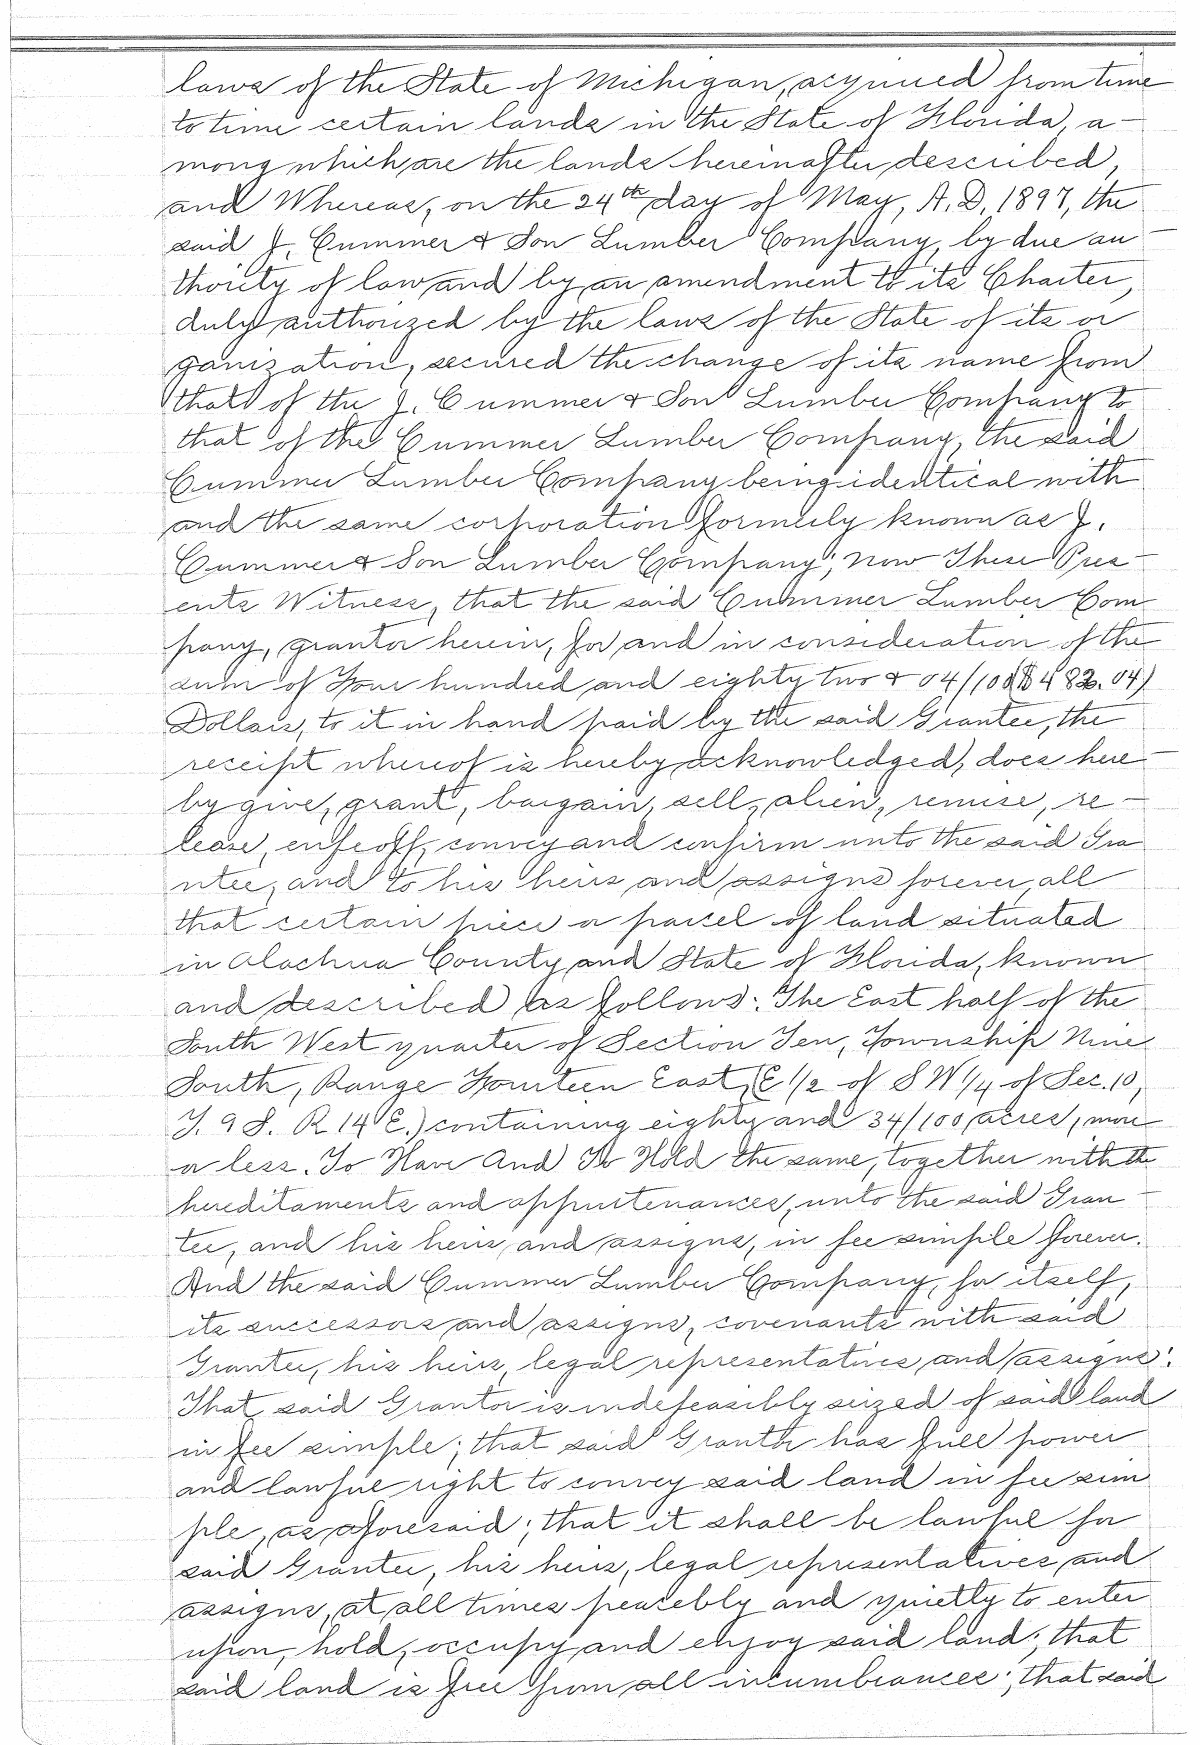 laws of the State of Michigan, acquired from time
to time certain lands in the State of Florida, a-
mong which are the lands hereinafter described,
and Whereas, on the 24th day of May, A.D. 1897, the
said J. Cummer & Son Lumber Company, by due au-
thority of law and by an amendment to its Charter,
duly authorized by the laws of the State of its or
ganization, secured the change of its name from
that of the J. Cummer & Son Lumber Company to
that of the Cummer Lumber Company, the said
Cummer Lumber Company being identical with
and the same corporation formerly known as J.
Cummer & Son Lumber Company; now These Pres-
ents Witness, that the said Cummer Lumber Com
pany, grantor herein, for and in consideration of the
sum of Four hundred and eighty two & 04/100 ($482.04)
Dollars, to it in hand paid by the said Grantee, the
receipt whereof is hereby acknowledged, does here-
by give, grant, bargain, sell, alien, remise, re-
lease, enfeoff, convey and confirm unto the said Gra
ntee, and to his heirs and assigns forever, all
that certain piece or parcel of land situated
in Alachua County and State of Florida, known
and described as follows: The East half of the
South West quarter of Section Ten, Township Nine
South, Range Fourteen East, (E 1/2 of S W 1/4 of Sec. 10,
T. 9 S. R 14 E.) containing eighty and 34/100 acres, more
or less. To Have And To Hold the same, together with the
hereditaments and appurtenances, unto the said Gran-
tee, and his heirs and assigns, in fee simple forever.
And the said Cummer Lumber Company, for itself,
its successors and assigns, covenants with said
Grantee, his heirs, legal representatives and assigns:
That said Grantor is indefeasibly seized of said land
in fee simple; that said Grantor has full power
and lawful right to convey said land in fee sim
ple, as aforesaid; that it shall be lawful for
said Grantee, his heirs, legal representatives and
assigns, at all times peacebly and quietly to enter
upon, hold, occupy and enjoy said land; that
said land is free from all incumbrances; that said